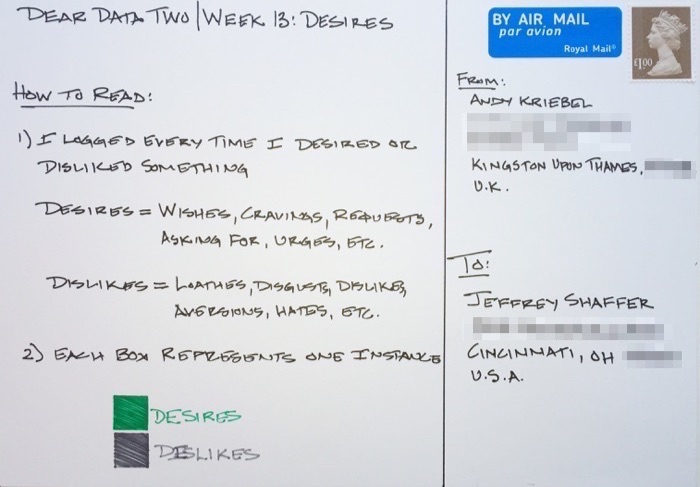 DEAR DATA TWO | WEEK 13: DESIRES
HOW TO READ:
1) I LOGGED EVERY TIME I DESIRED OR
DISLIKED SOMETHING
DESIRES = WISHES, CRAVINGS, REQUESTS,
ASKING FOR, URGES, ETC.
DISLIKES = LOATHES, DISGUSTS, DISLIKES,
AVERSIONS, HATES, ETC.
2) EACH BOX REPRESENTS ONE INSTANCE
DESIRES
DESLIKES
BY AIR MAIL
par avion
Royal Mail®
£1.00
FROM:
ANDY KRIEBEL
KINGSTON UPON THAMES,
U.K.
TO:
JEFFREY SHAFFER
CINCINNATI, OH
U.S.A.